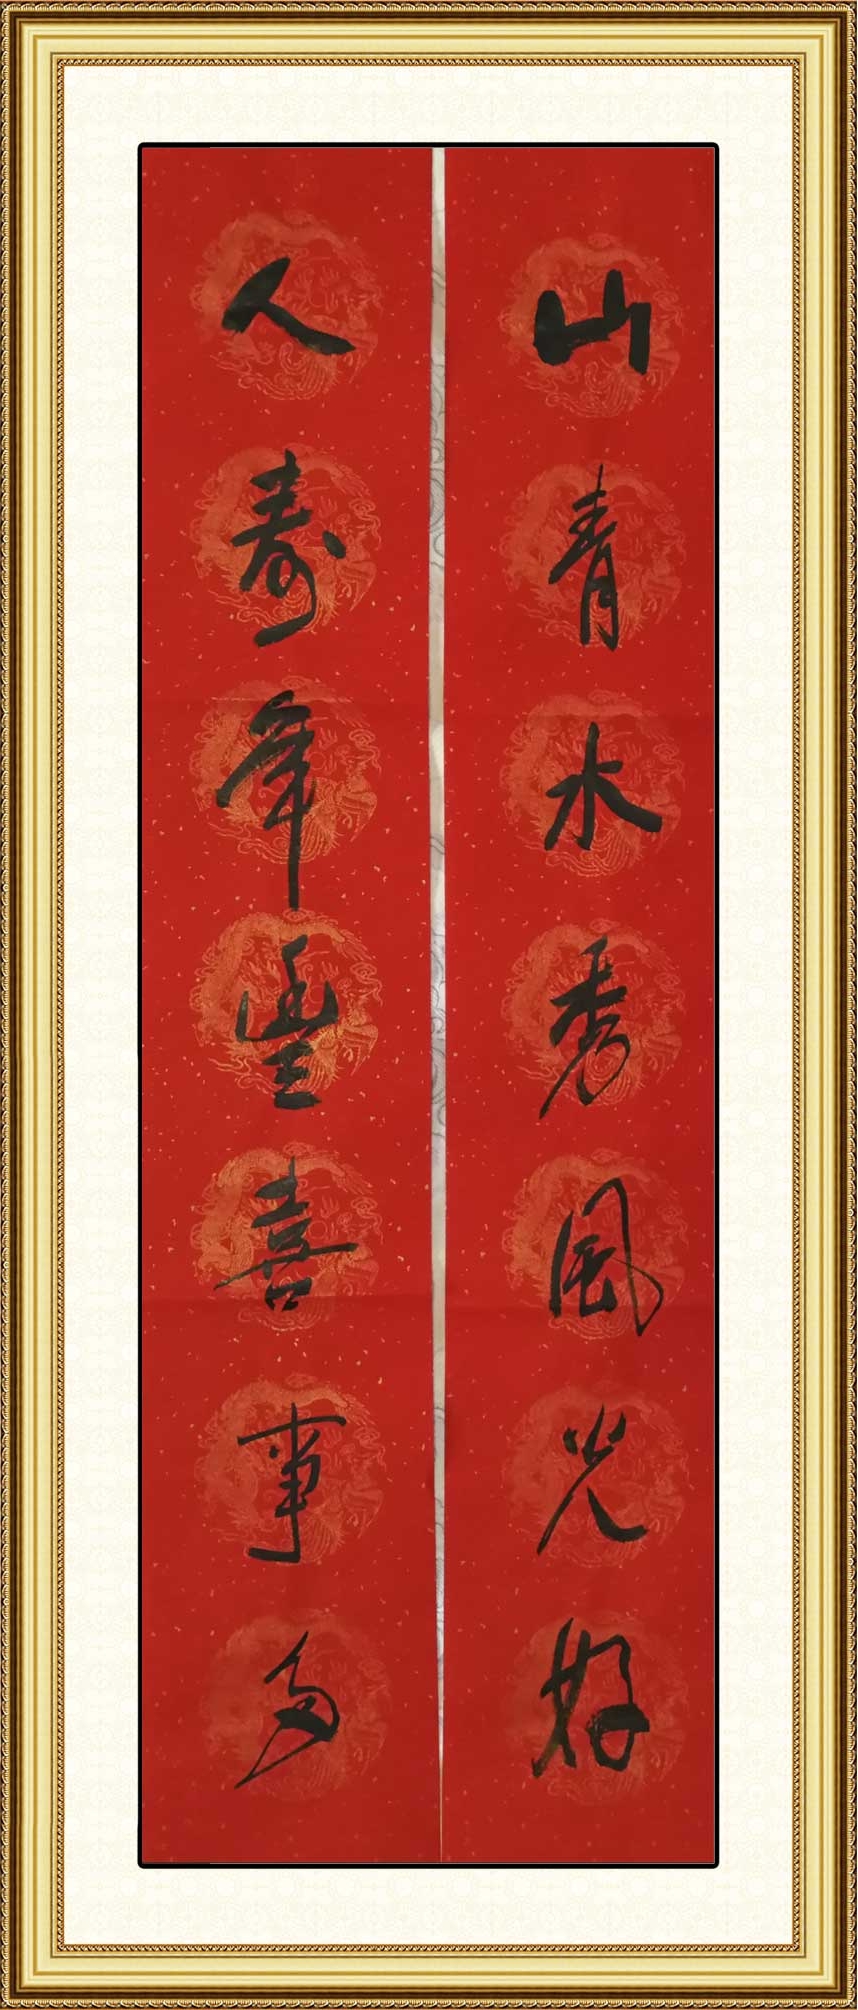 山青水秀風光好
人寿年豐喜事多